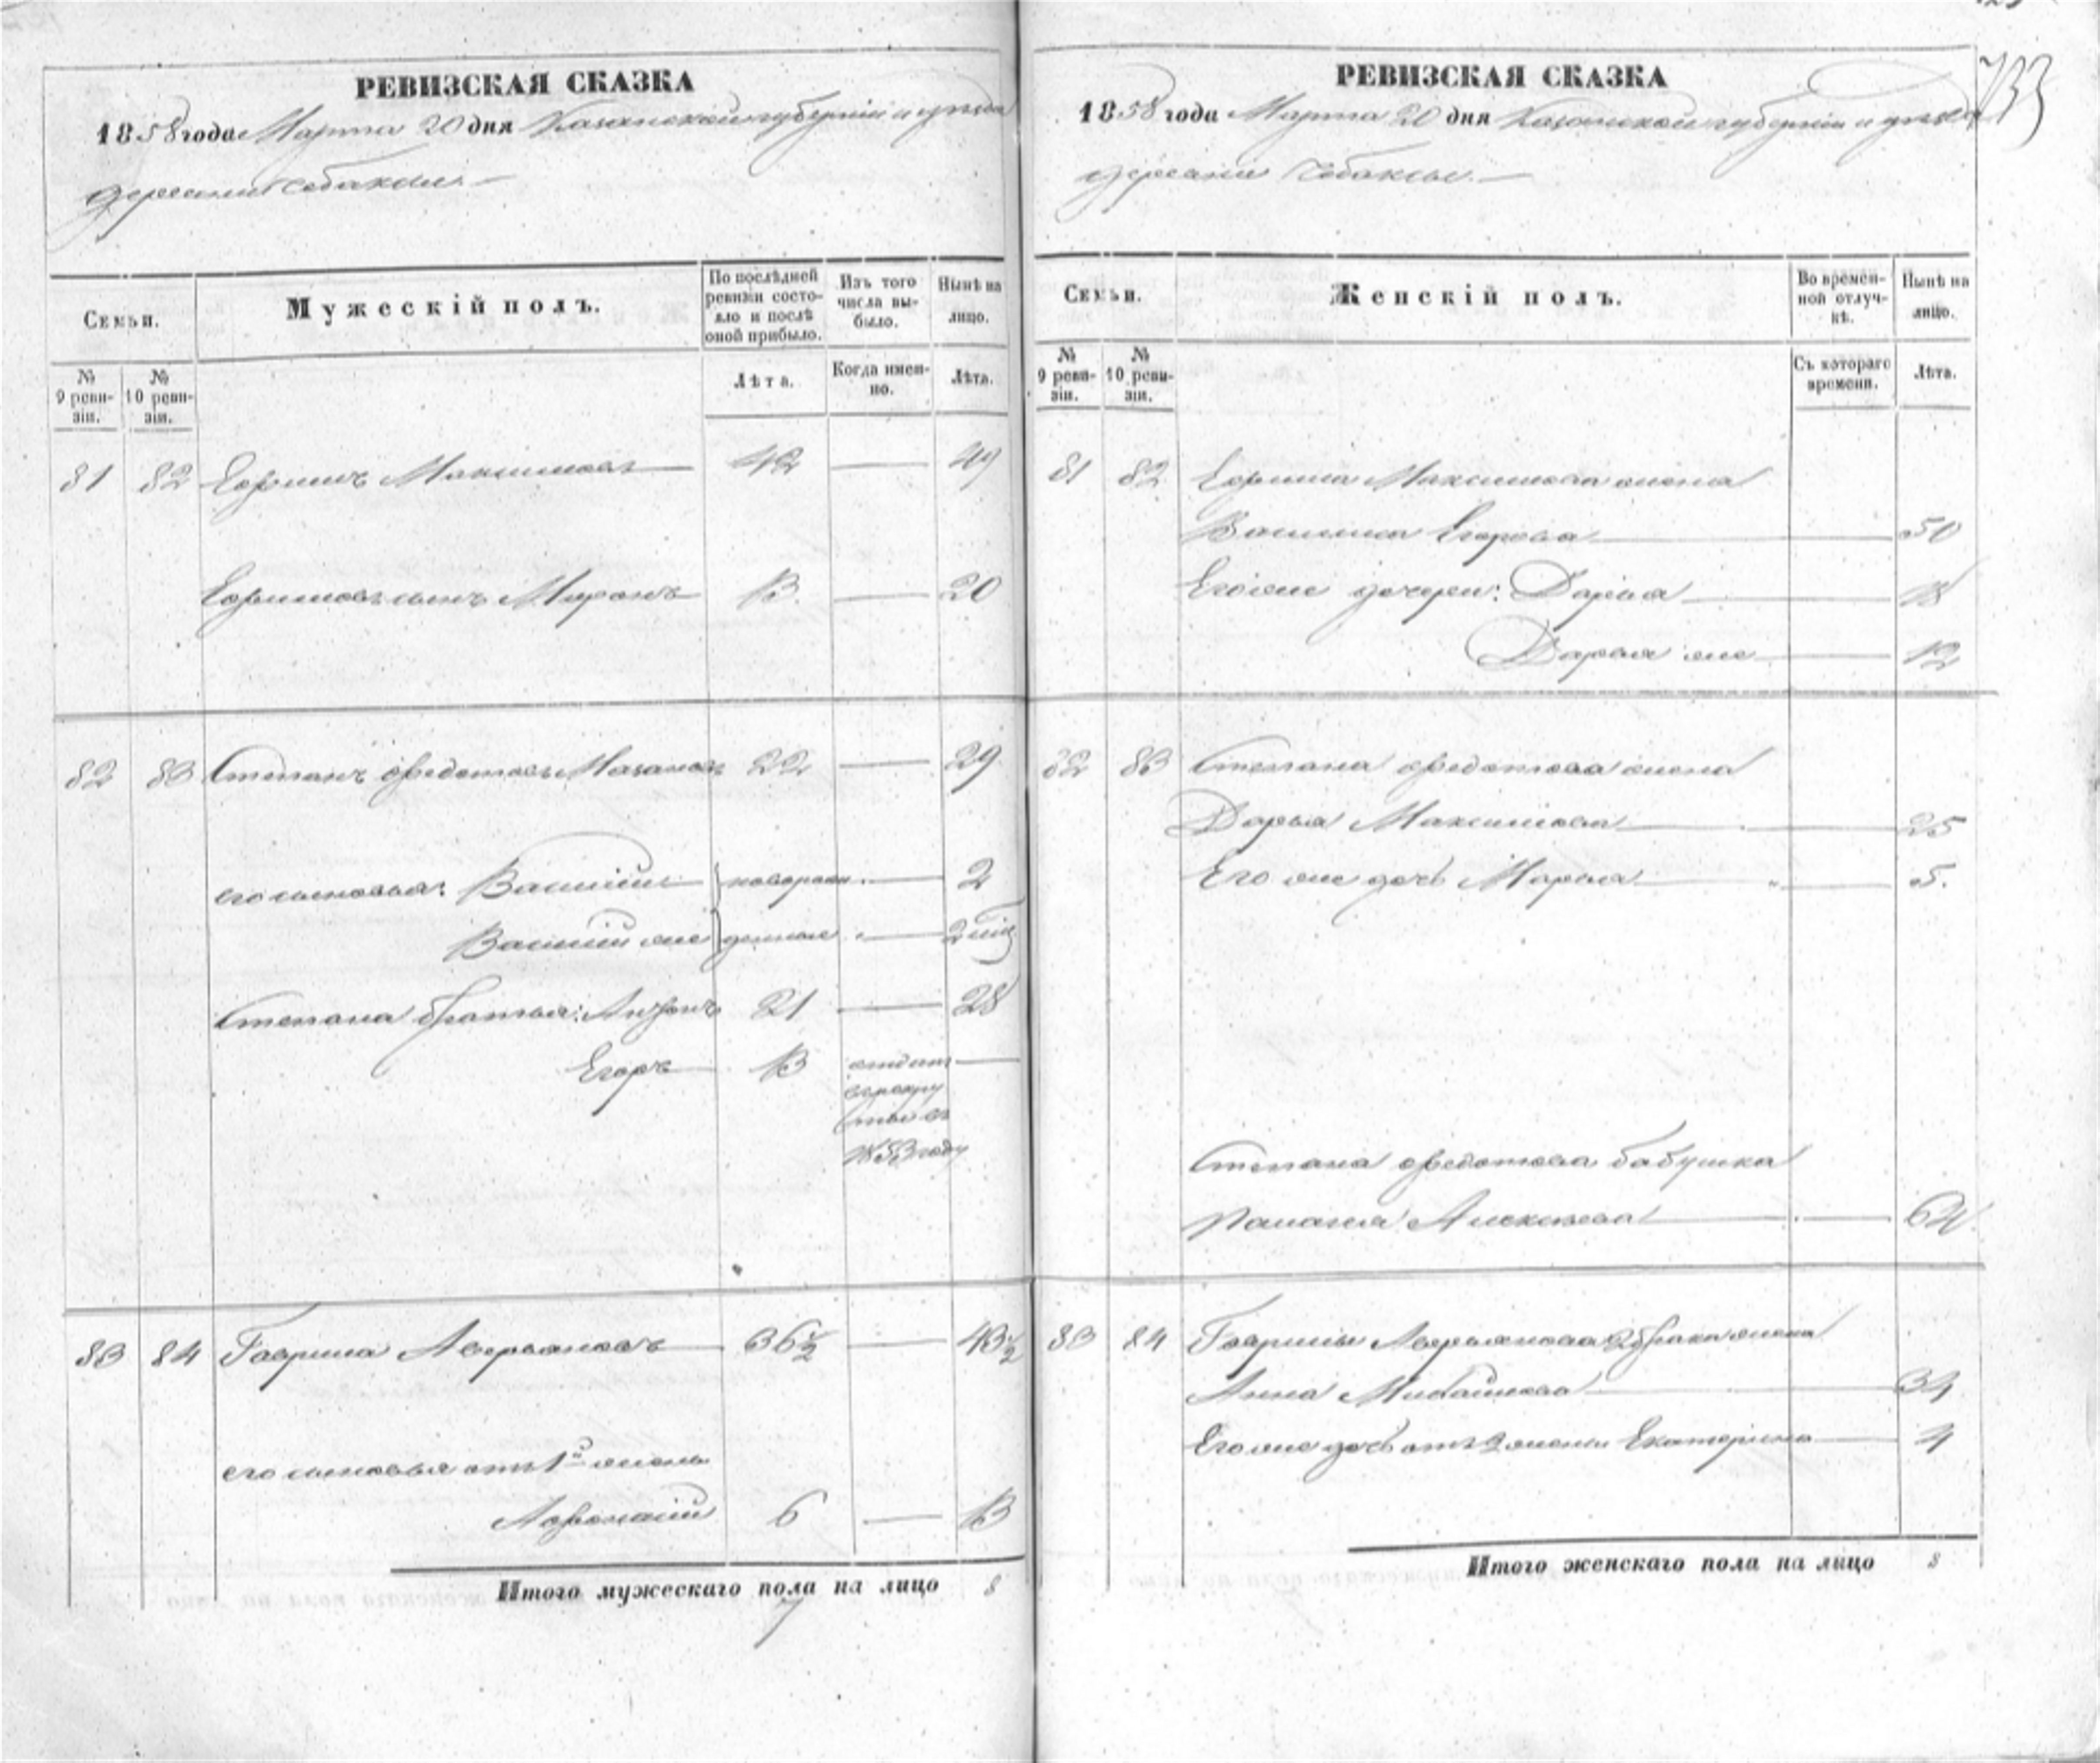 РЕВИЗСКАЯ СКАЗКА
1858 года Марта 20 дня Казанской губернии и уезда
деревни Чебаксы.
Семьи.
Мужескій полъ.
По послѣдней ревизіи состояло и послѣ оной прибыло.
Изъ того числа выбыло.
Нынѣ на лицо.
№ 9 ревизіи.
№ 10 ревизіи.
Лѣта.
Когда именно.
Лѣта.
81 82 Ефимъ Максимовъ 42 — 49
Ефимовъ сынъ Миронъ 13 — 20
82 83 Степанъ Федотовъ 22 — 29
его сыновья: Василій новорож — 2
Василій же денные — 2
Степана братья: 21 — 28
Егоръ 13 отдат —
в рекру
ты въ
1853 году
83 84 Гаврила Аверьяновъ 36½ — 43½
его сыновья отъ 1й жены
Афонасій 6 — 13
Итого мужескаго пола на лицо 8
7
733
РЕВИЗСКАЯ СКАЗКА
1858 года Марта 20 дня Казанской губернии и уезда
деревни Чебаксы.
Семьи.
Женскій полъ.
Во временной отлучкѣ.
Нынѣ на лицо.
№ 9 ревизіи.
№ 10 ревизіи.
Съ котораго времени.
Лѣта.
81 82 Ефима Максимова жена
Егорова — 50
Его же дочери: Дарья — 18
Дарья же — 12
82 83 Степана Федотова жена
Дарья Максимова — 25
Его же дочь Марья — 5.
Степана Федотова бабушка
Алексѣева — 64
83 84 Гаврилы Аверьянова 2 брака жена
Анна Михайлова — 34
Его же дочь отъ 2 жены Екатерина — 4
Итого женскаго пола на лицо 8